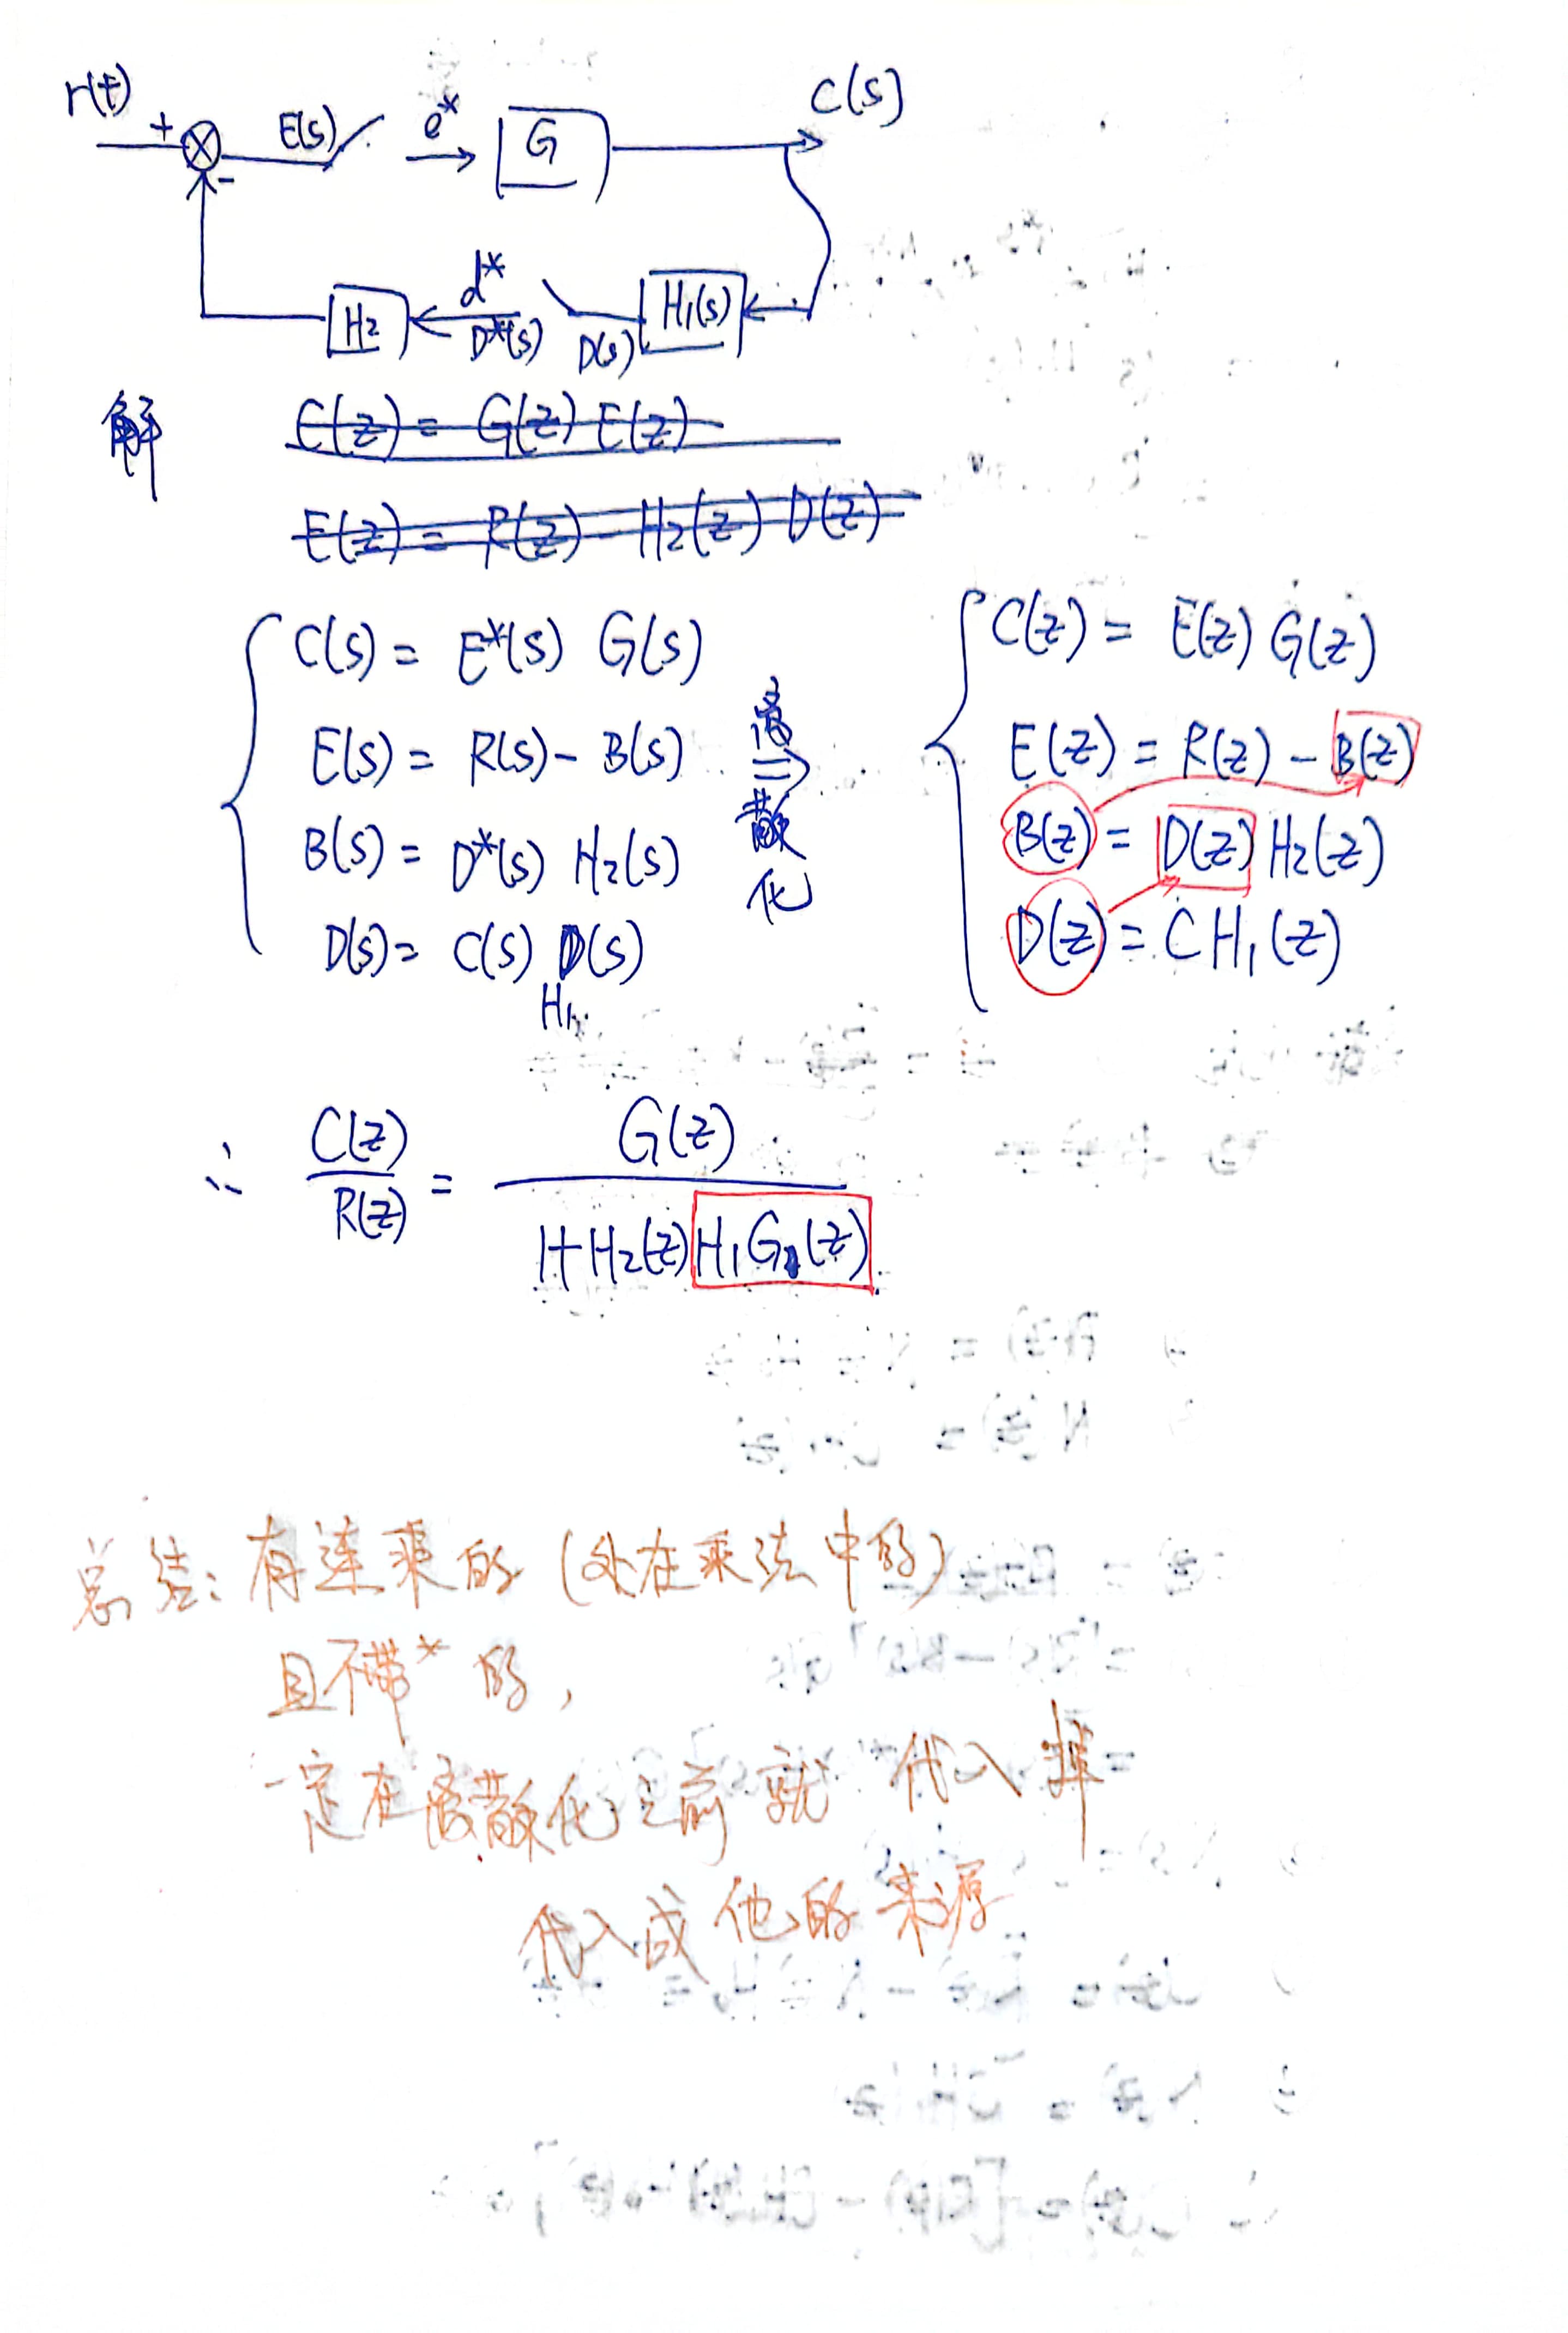 r(t) + E(s) e* G C(s)
-
H2 d* D*(s) D(s) H1(s)
解 C(z) = G(z) E(z)
E(z) = R(z) - H2(z) D(z)
C(s) = E*(s) G(s)
E(s) = R(s) - B(s)
B(s) = D*(s) H2(s)
D(s) = C(s) D(s)
H1
离散化
⇒
C(z) = E(z) G(z)
E(z) = R(z) - B(z)
B(z) = D(z) H2(z)
D(z) = CH1(z)
∴ C(z)/R(z) = G(z)/(1+H2(z)H1G(z))
总结: 有连乘的 (处在乘法中的)
且不带* 的,
一定在离散化之前就 代入掉
代入成 他的来源